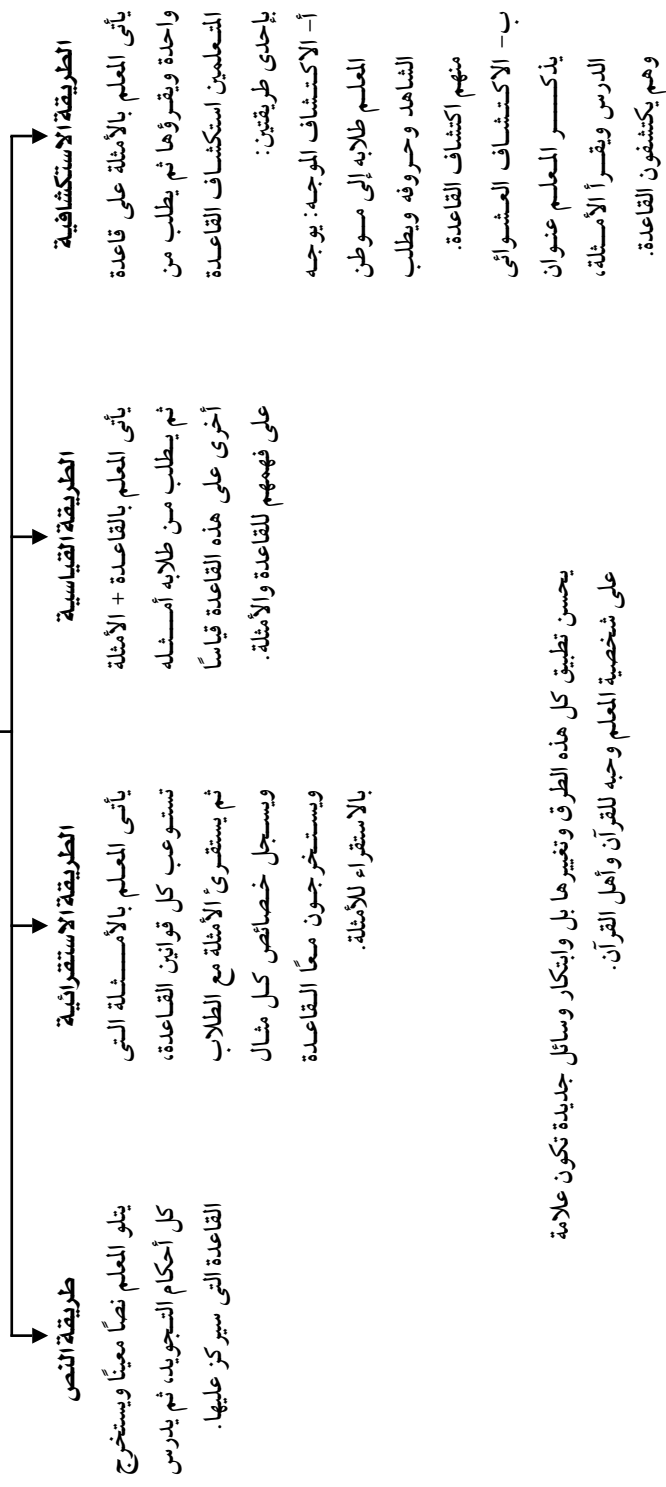 الطريقة الاستكشافية
يأتى المعلم بالأمثلة على قاعدة
واحدة ويقرؤها ثم يطلب من
المتعلمين استكشاف القاعدة
بإحدى طريقتين:
أ- الاكتشاف الموجه: يوجه
المعلم طلابه إلى موطن
الشاهد وحروفه ويطلب
منهم اكتشاف القاعدة.
ب- الاكتشاف العشوائى
يذكر المعلم عنوان
الدرس ويقرأ الأمثلة،
وهم يكتشفون القاعدة.
الطريقة القياسية
يأتى المعلم بالقاعدة + الأمثلة
ثم يطلب من طلابه أمثله
أخرى على هذه القاعدة قياسًا
على فهمهم للقاعدة والأمثلة.
الطريقة الاستقرائية
يأتى المعلم بالأمثلة التى
تستوعب كل قوانين القاعدة،
ثم يستقرئ الأمثلة مع الطلاب
ويسجل خصائص كل مثال
ويستخرجون معًا القاعدة
بالاستقراء للأمثلة.
طريقة النص
يتلو المعلم نصًا معينًا ويستخرج
كل أحكام التجويد، ثم يدرس
القاعدة التى سيركز عليها.
يحسن تطبيق كل هذه الطرق وتغييرها بل وابتكار وسائل جديدة تكون علامة
على شخصية المعلم وحبه للقرآن وأهل القرآن.